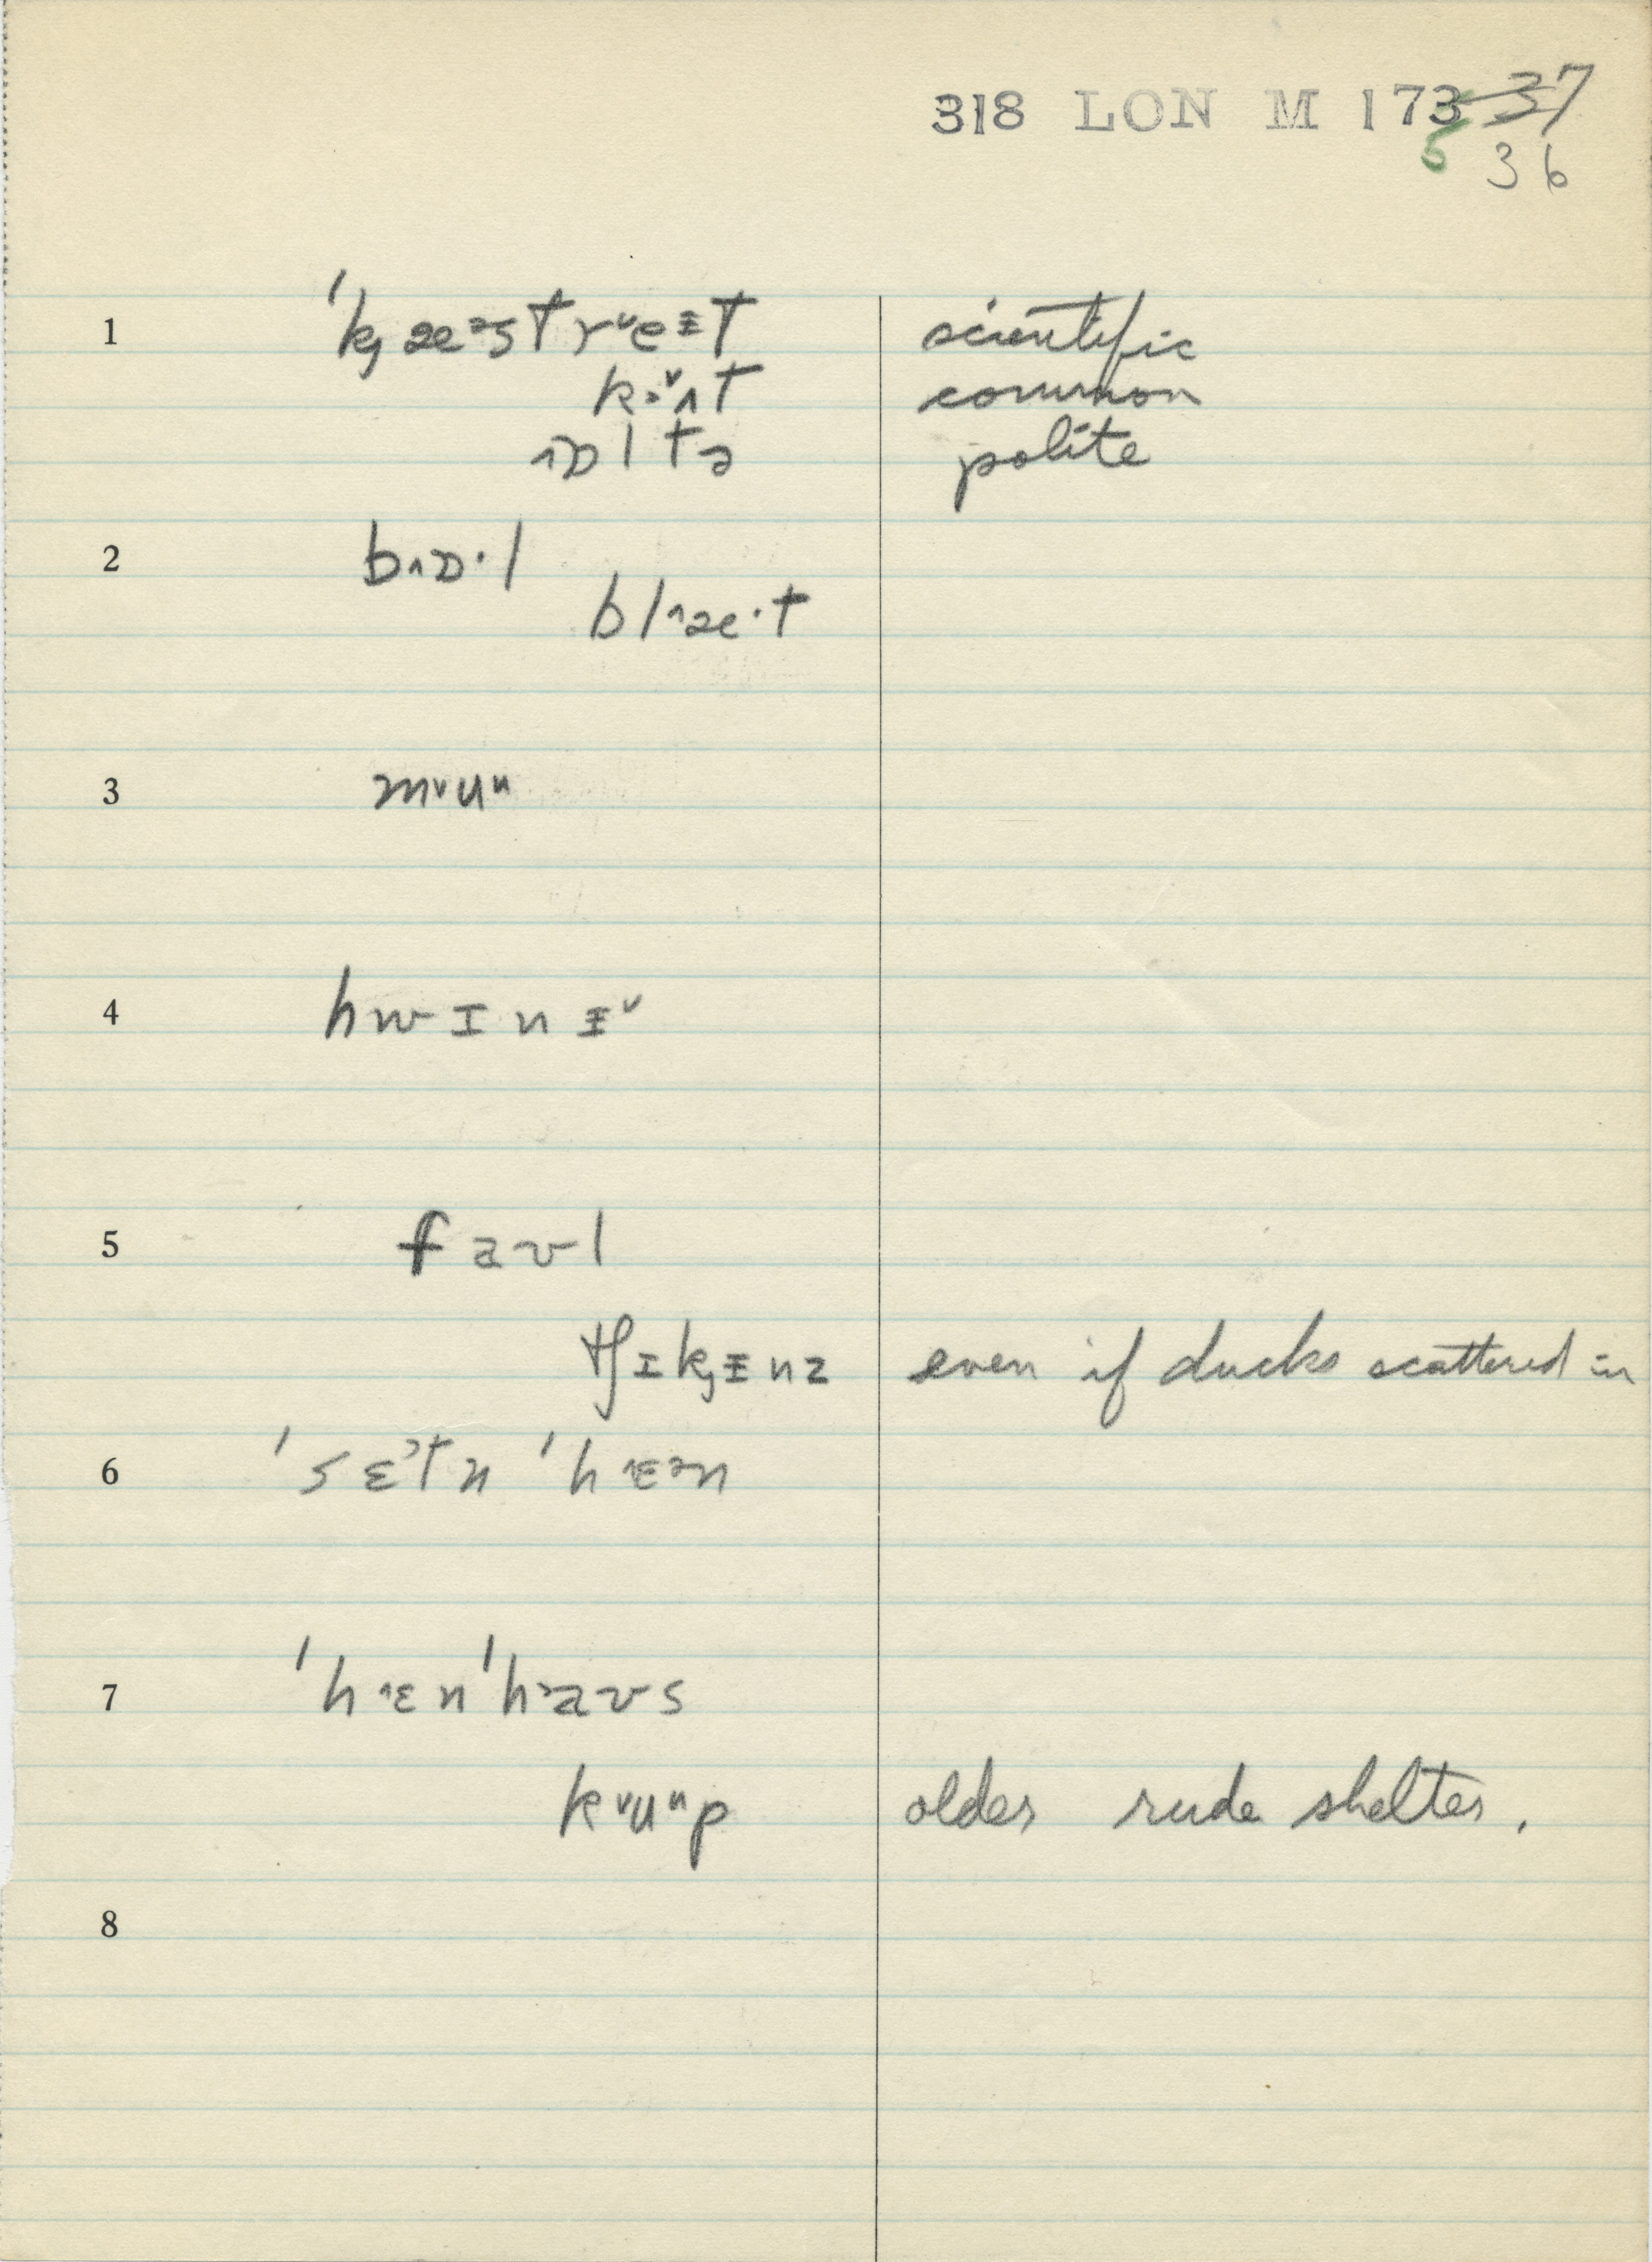 318 LON M 173 37
5 36
1 ˈk̡æᵊstrᵛeᵻt scientific
kɜᵛʌt common
ɒltə polite
2 b˄ɒ·l
bl˄æ·t
3 mᵛuᵘ
4 hwɪnᵻᵛ
5 faʊl
tʃɪk̡ᵻnz even if ducks scattered in
6 ˈsɛˀtn ˈh˂ɛᵊn
7 ˈh˂ɛnˈh˃aʊs
kᵛuᵘp older rude shelter.
8